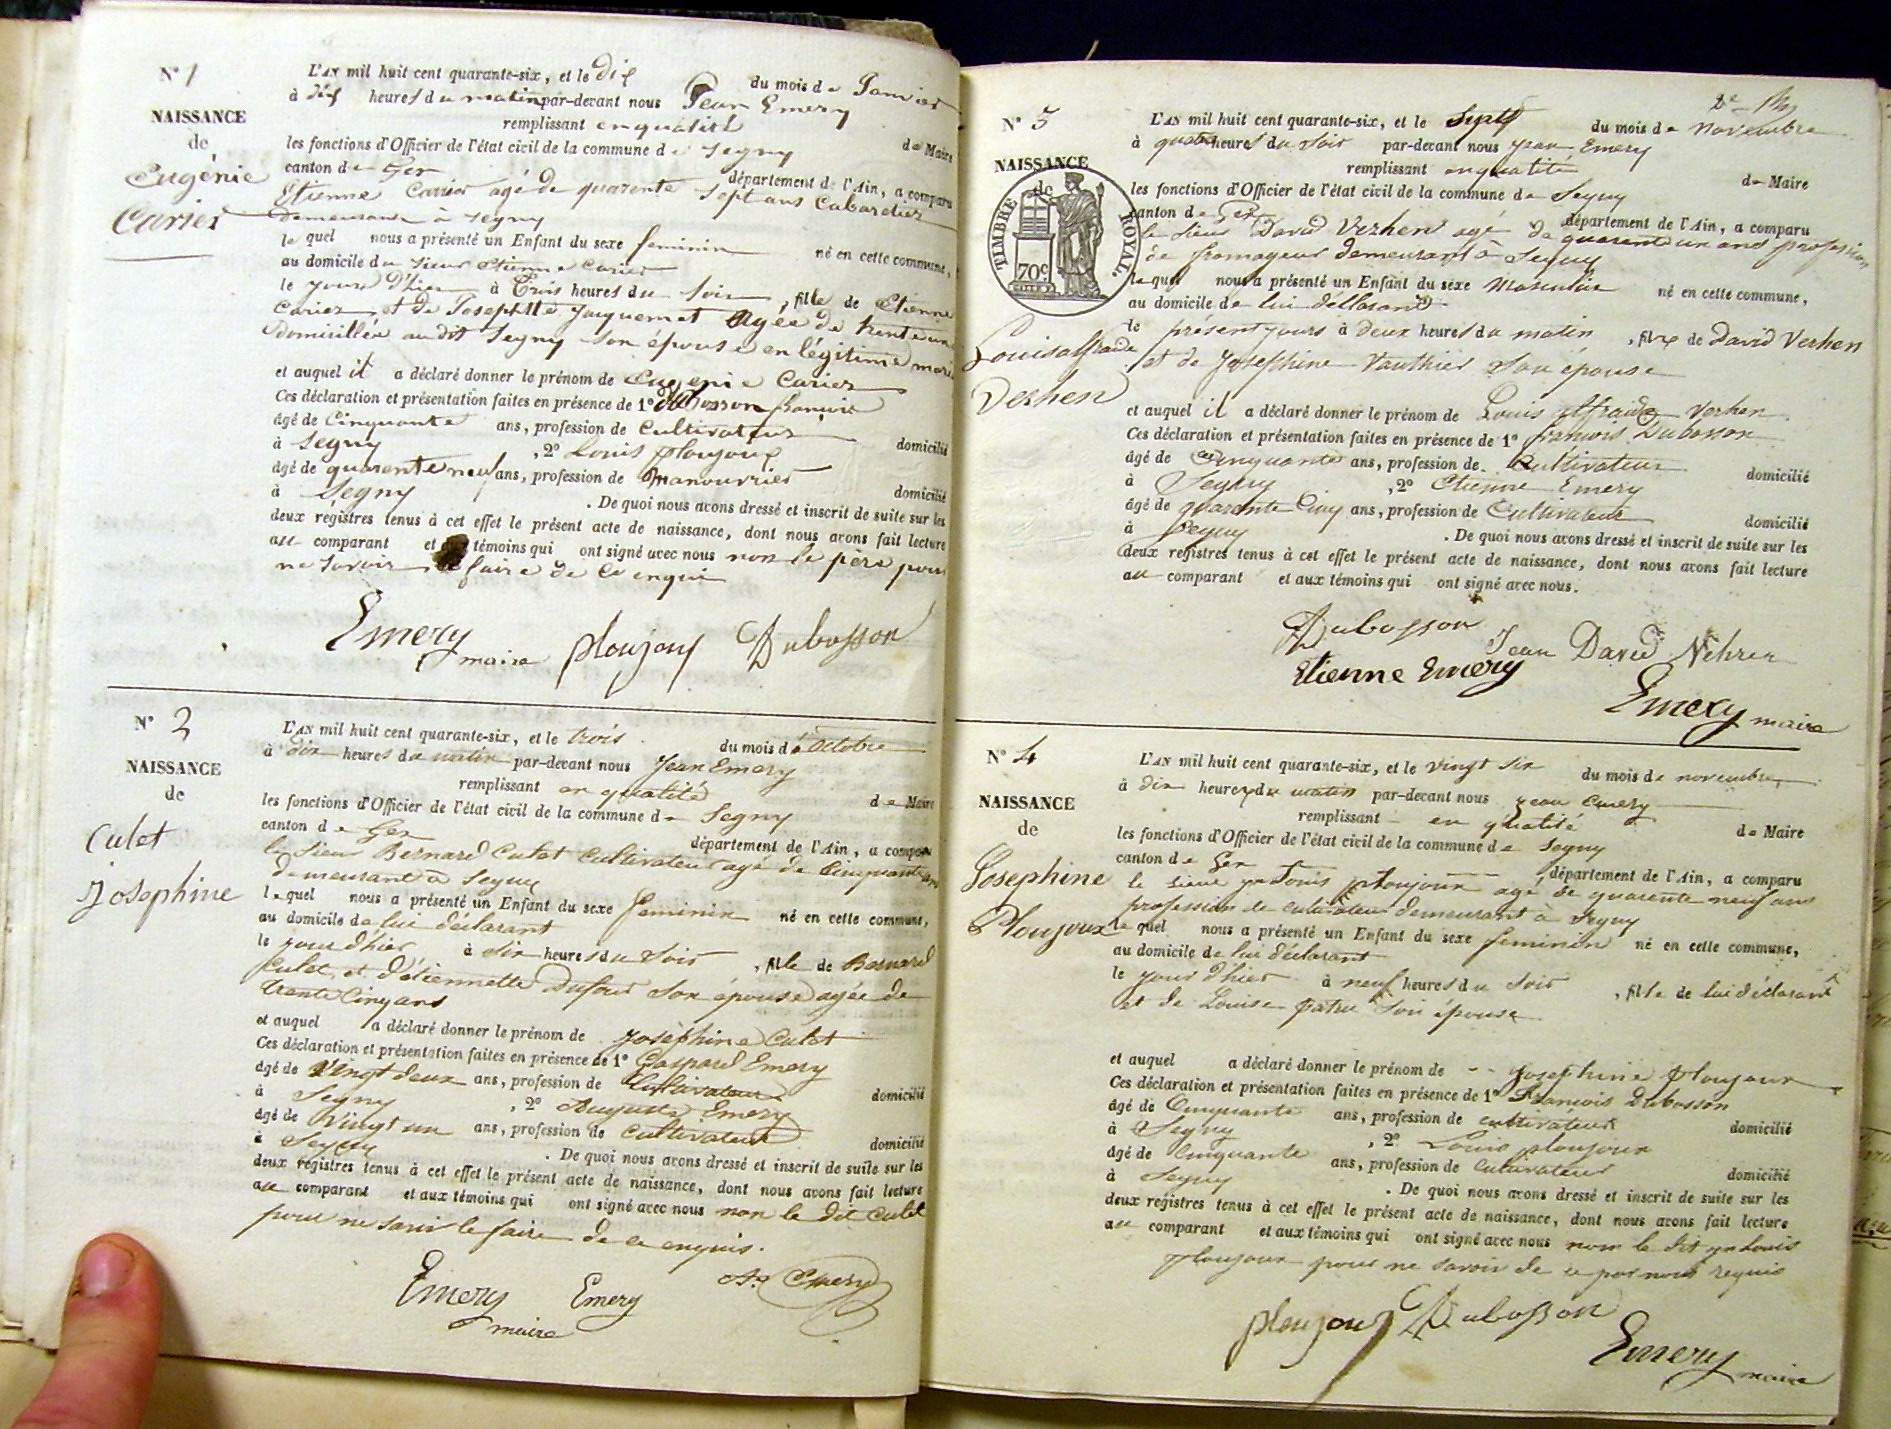 N° 1
NAISSANCE
de
Eugénie
Carier
L'AN mil huit cent quarante-six, et le dix du mois de Janvier
à dix heures du matin par-devant nous Jean Emery
remplissant en qualité de Maire
les fonctions d'Officier de l'état civil de la commune de Segny
canton de Gex département de l'Ain, a comparu
Etienne Carier agé de quarente sept ans Cabaretier
demeurant à Segny
le quel nous a présenté un Enfant du sexe feminin né en cette commune,
au domicile du sieur Etienne Carier
le jour d'hier à trois heures du soir, fille de Etienne
Carier et de Josephte Jaquemet agée de trente un
domiciliée au dit Segny son épouse en légitime
et auquel il a déclaré donner le prénom de Eugenie Carier
Ces déclaration et présentation faites en présence de 1° Dubosson francois
âgé de Cinquante ans, profession de Cultivateur domicilié
à Segny, 2° Louis ploujoux
âgé de quarente neuf ans, profession de manouvrier domicilié
à Segny. De quoi nous avons dressé et inscrit de suite sur les
deux régistres tenus à cet effet le présent acte de naissance, dont nous avons fait lecture
au comparant et témoins qui ont signé avec nous non le père pour
ne savoir le faire de ce enquis
Emery maire ploujoux Dubosson
N° 2
NAISSANCE
de
Culet
Josephine
L'AN mil huit cent quarante-six, et le trois du mois d'octobre
à dix heures du matin par-devant nous Jean Emery
remplissant en qualité de Maire
les fonctions d'Officier de l'état civil de la commune de Segny
canton de Gex département de l'Ain, a comparu
le sieur Bernard Culet Cultivateur agé de Cinquante ans
demeurant à Segny
lequel nous a présenté un Enfant du sexe feminin né en cette commune,
au domicile de lui déclarant
le jour d'hier à dix heures du soir, fille de Bernard
Culet et d'étiennette Dufour son épouse agée de
trente Cinq ans
et auquel a déclaré donner le prénom de Josephine Culet
Ces déclaration et présentation faites en présence de 1° Gaspard Emery
âgé de vingt deux ans, profession de Cultivateur domicilié
à Segny, 2° Auguste Emery
âgé de Vingt un ans, profession de cultivateur domicilié
à Segny. De quoi nous avons dressé et inscrit de suite sur les
deux régistres tenus à cet effet le présent acte de naissance, dont nous avons fait lecture
au comparant et aux témoins qui ont signé avec nous non le dit Culet
pour ne savoir le faire de ce enquis.
Emery maire Emery Emery
N° 3
NAISSANCE
de
TIMBRE ROYAL.
70c
Louis alfraide
Verhen
L'AN mil huit cent quarante-six, et le Sept du mois de Novembre
à quatre heures du soir par-devant nous Jean Emery
remplissant en qualité de Maire
les fonctions d'Officier de l'état civil de la commune de Segny
canton de Gex département de l'Ain, a comparu
le sieur David Verhen agé de quarente un ans profession
de fromageur demeurant à Segny
lequel nous a présenté un Enfant du sexe Masculin né en cette commune,
au domicile de lui déclarant
le présent jours à deux heures du matin, fils de David Verhen
et de Josephine Vauthier son épouse
et auquel il a déclaré donner le prénom de Louis alfraide Verhen
Ces déclaration et présentation faites en présence de 1° francois Dubosson
âgé de Cinquante ans, profession de Cultivateur domicilié
à Segny, 2° Etienne Emery
âgé de quarente Cinq ans, profession de Cultivateur domicilié
à Segny. De quoi nous avons dressé et inscrit de suite sur les
deux registres tenus à cet effet le présent acte de naissance, dont nous avons fait lecture
au comparant et aux témoins qui ont signé avec nous.
Dubosson Jean David Nehren
Etienne Emery
Emery maire
N° 4
NAISSANCE
de
Josephine
Ploujoux
L'AN mil huit cent quarante-six, et le vingt six du mois de novembre
à dix heures du matin par-devant nous Jean Emery
remplissant en qualité de Maire
les fonctions d'Officier de l'état civil de la commune de Segny
canton de Gex département de l'Ain, a comparu
le sieur Louis ploujoux agé de quarente neuf ans
profession de cultivateur demeurant à Segny
lequel nous a présenté un Enfant du sexe feminin né en cette commune,
au domicile de lui déclarant
le jour d'hier à neuf heures du soir, fille de lui déclarant
et de Louise patru son épouse
et auquel a déclaré donner le prénom de Josephine ploujoux
Ces déclaration et présentation faites en présence de 1° Francois Dubosson
âgé de Cinquante ans, profession de cultivateur domicilié
à Segny, 2° Louis ploujoux
âgé de Cinquante ans, profession de Cultivateur domicilié
à Segny. De quoi nous avons dressé et inscrit de suite sur les
deux régistres tenus à cet effet le présent acte de naissance, dont nous avons fait lecture
au comparant et aux témoins qui ont signé avec nous non le dit Louis
ploujoux pour ne savoir de ce par nous requis
ploujoux Dubosson
Emery maire